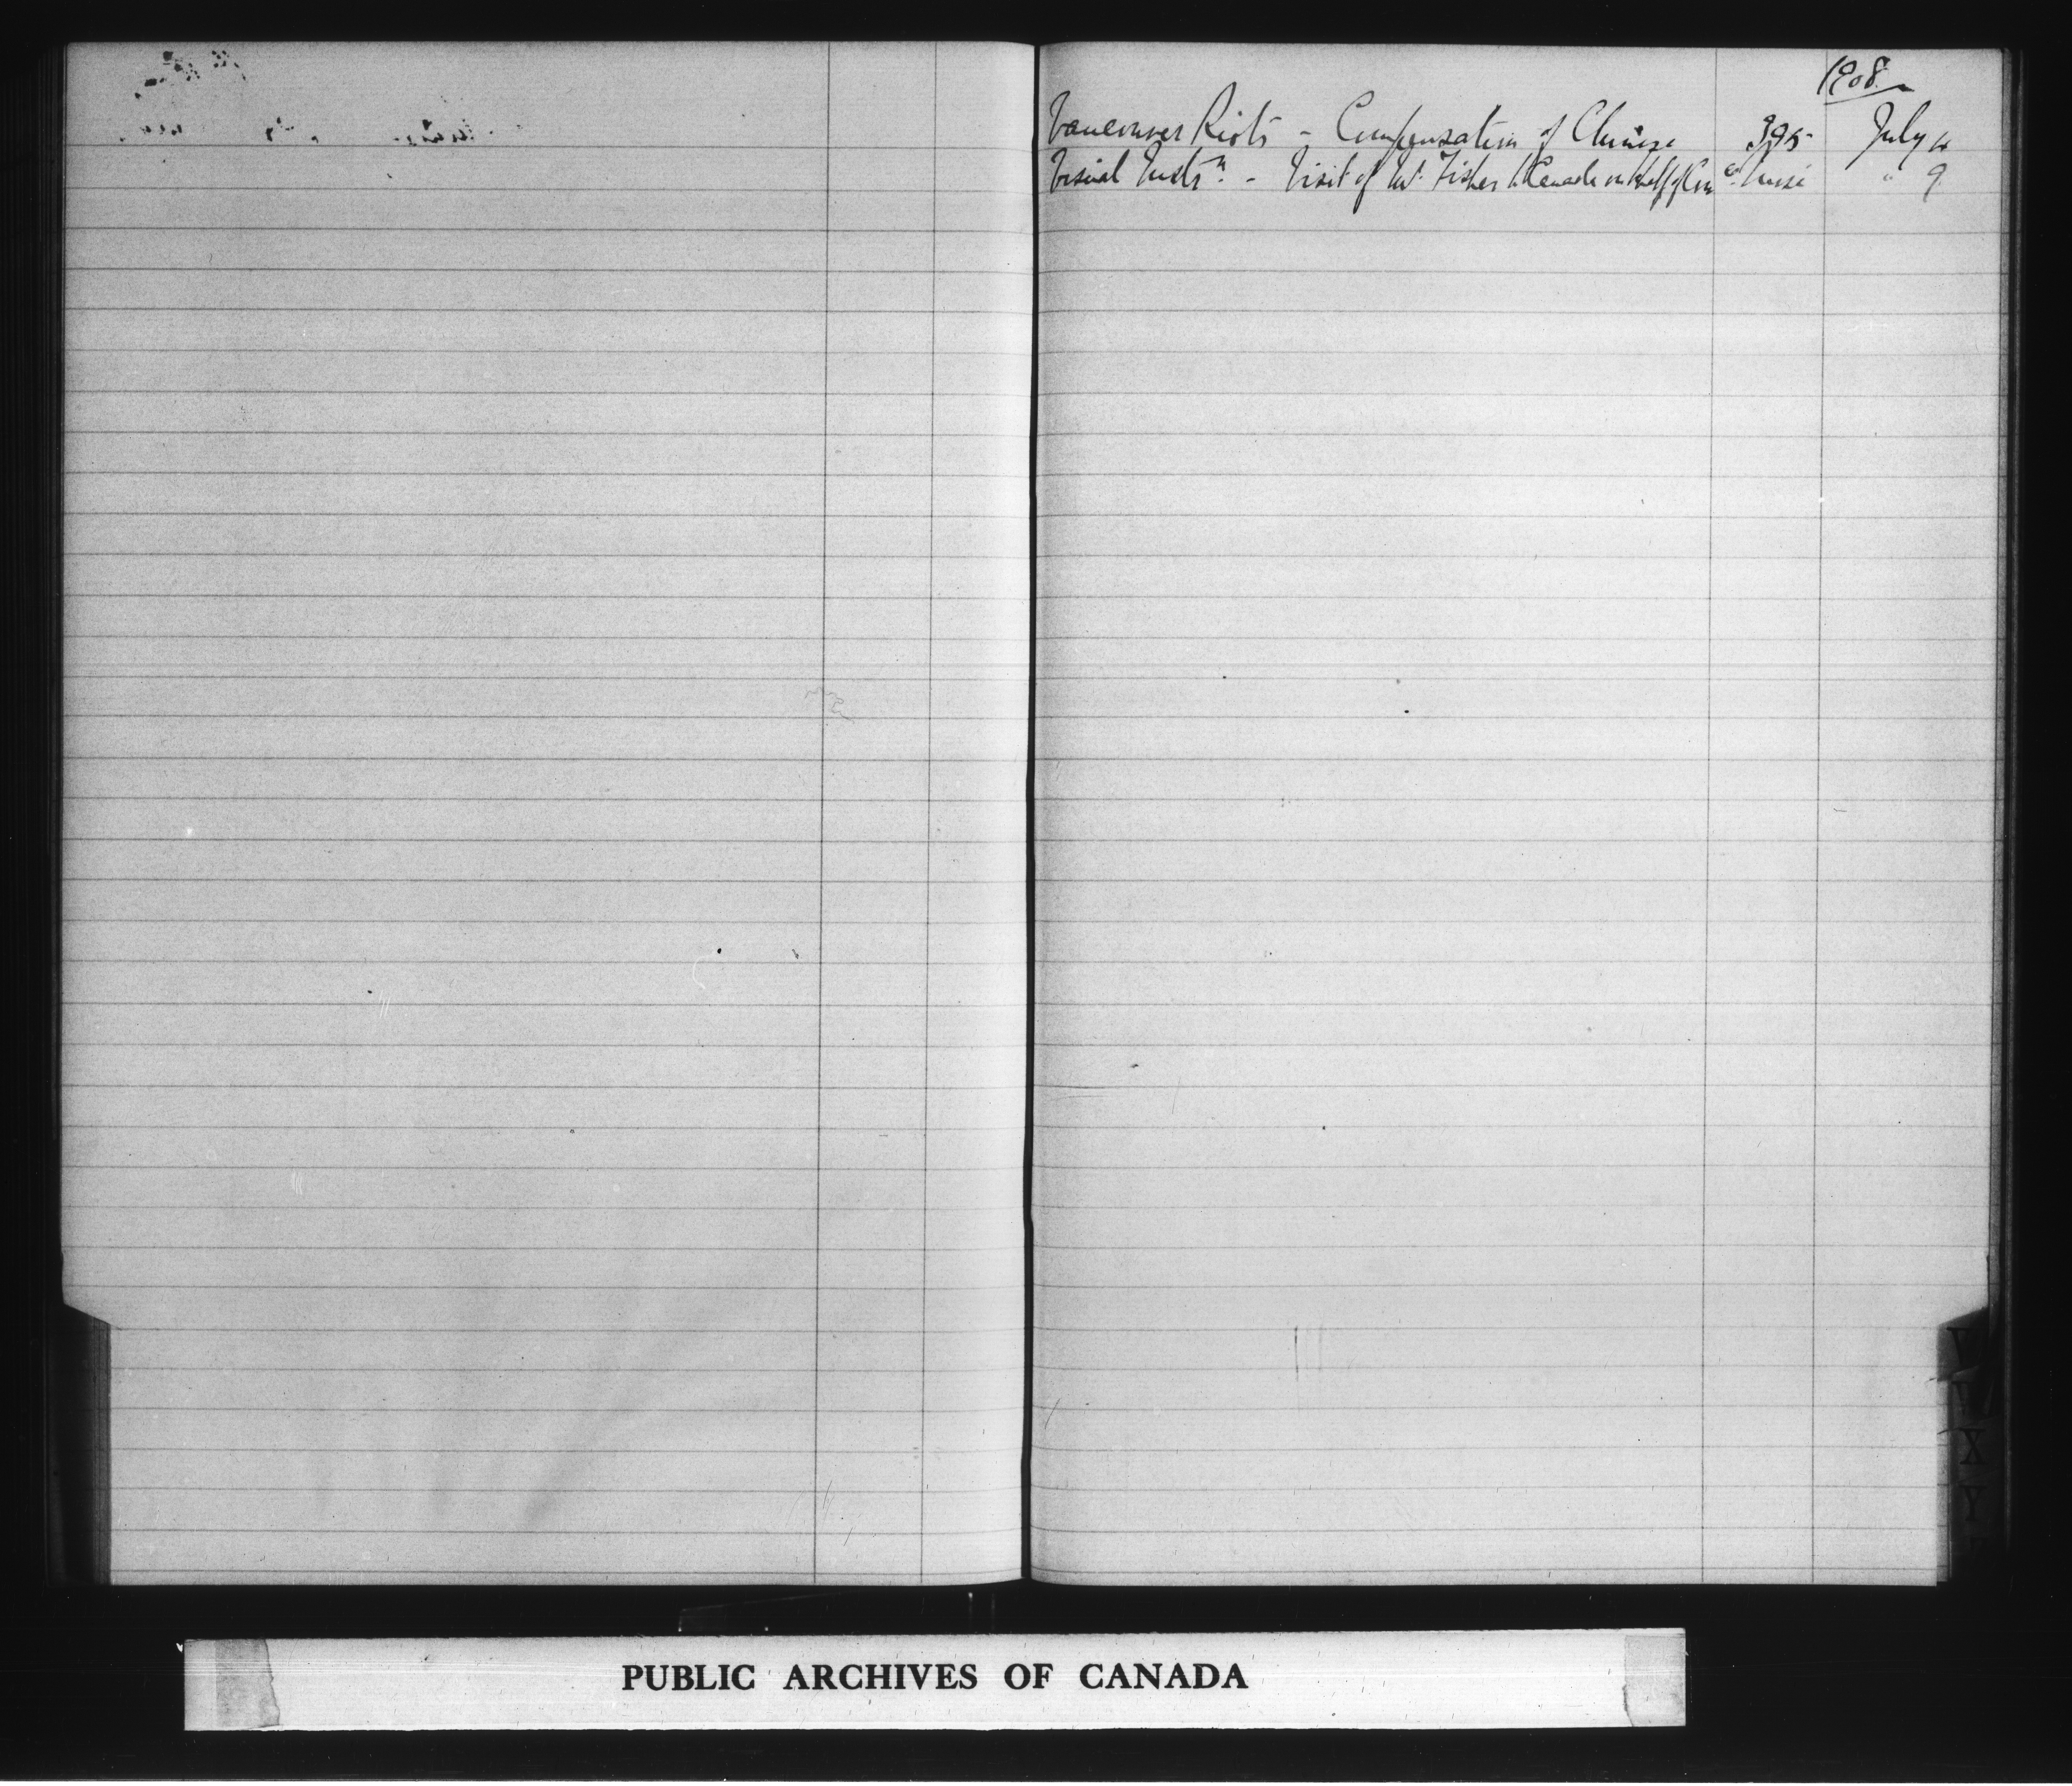 1908.
Vancouver Riots - Compensation of Chinese 395 July 4
Visual Instn. - Visit of Mr. Fisher to Canada on behalf of Comee Misc " 9
V
W
X
Y
PUBLIC ARCHIVES OF CANADA